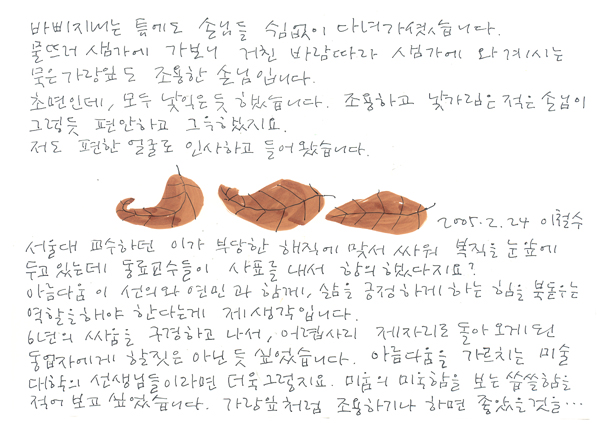 바삐지내는 틈에도 손님들 쉬임없이 다녀가셨습니다.
물뜨러 샘가에 가보니 거친 바람따라 샘가에 와 계시는
묵은 가랑잎도 조용한 손님입니다.
초면인데, 모두 낯익은듯 했습니다. 조용하고 낯가림은 적은 손님이
그렇듯 편안하고 그윽했지요.
저도 편한 얼굴로 인사하고 들어왔습니다.
2005.2.24 이철수
서울대 교수하던 이가 부당한 해직에 맞서 싸워 복직을 눈앞에
두고 있는데 동료교수들이 사표를 내서 항의했다지요?
아름다움이 선의와 연민과 함께, 삶을 긍정하게 하는 힘을 북돋우는
역할을해야 한다는게 제생각입니다.
6년의 싸움을 구경하고 나서, 어렵사리 제자리로 돌아오게된
동업자에게 할짓은 아닌듯 싶었습니다. 아름다움을 가르치는 미술
대학의 선생님들이라면 더욱 그렇지요. 미움의 미욱함을 보는 씁쓸함을
적어 보고 싶었습니다. 가랑잎처럼 조용하기나 하면 좋았을것을…